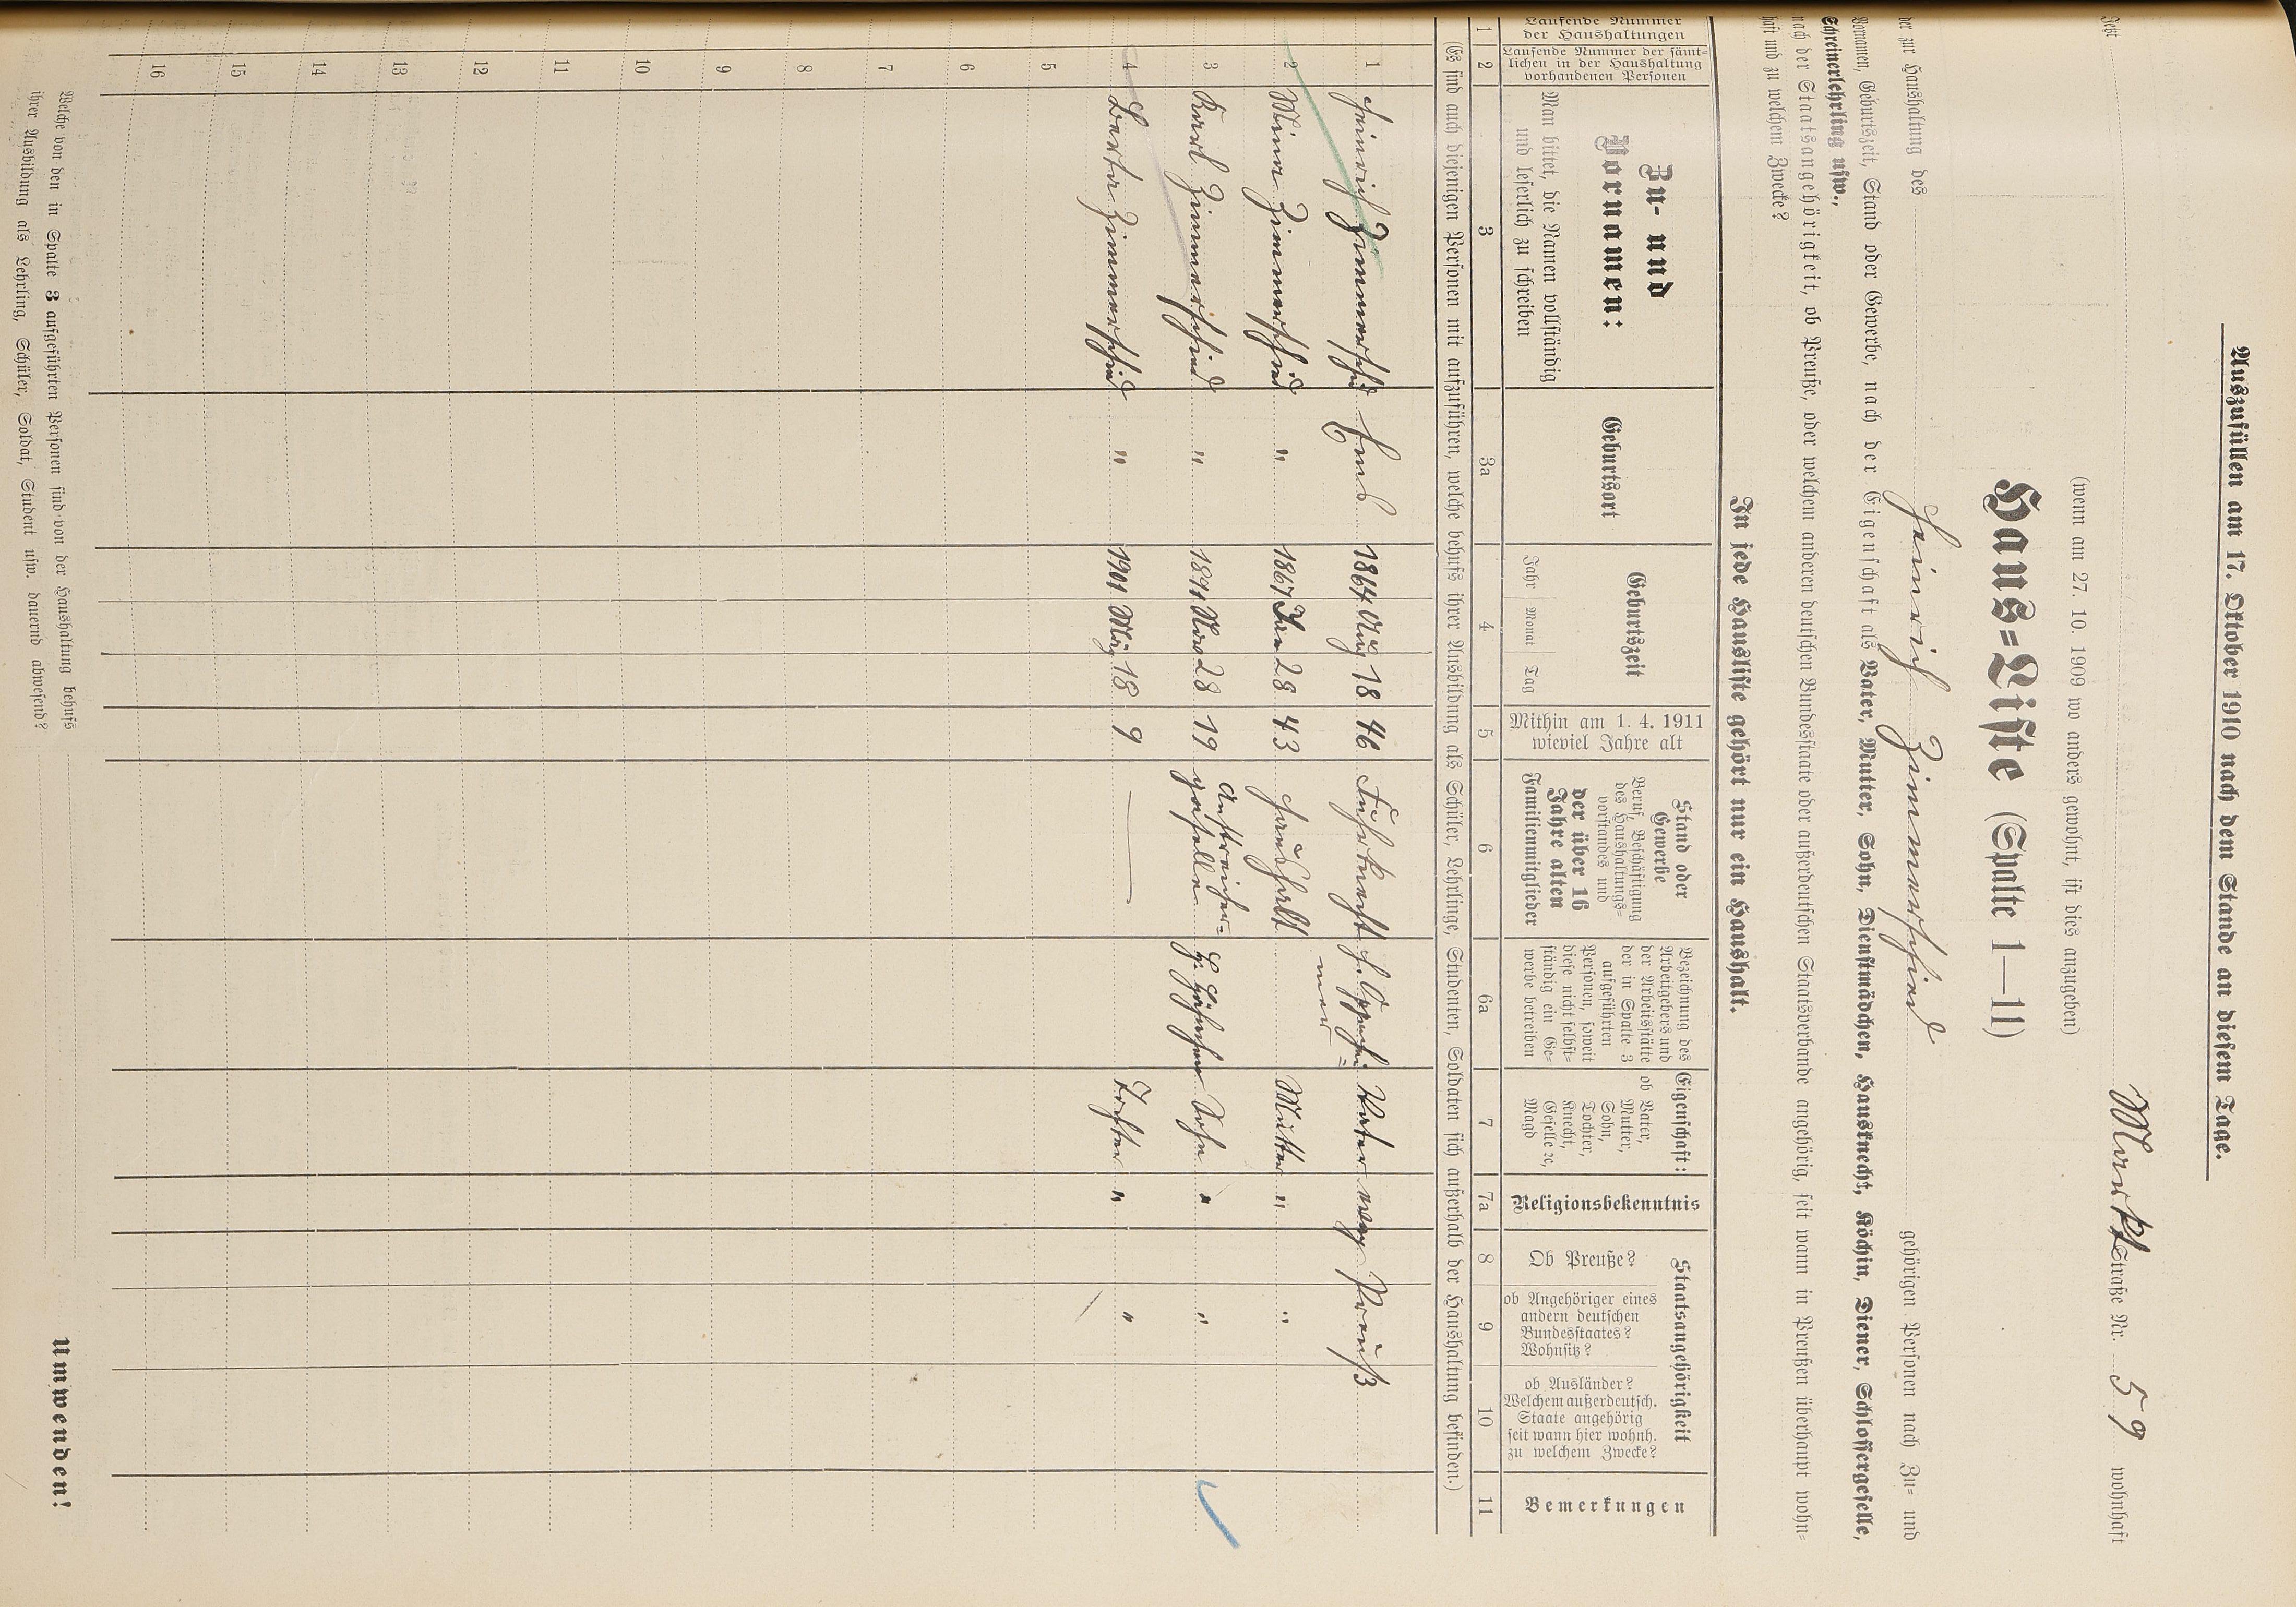 Auszufüllen am 17. Oktober 1910 nach dem Stande an diesem Tage.
Jetzt Markt Straße Nr. 59 wohnhaft
(wenn am 27. 10. 1909 wo anders gewohnt, ist dies anzugeben)
Haus=Liste (Spalte 1—11)
der zur Haushaltung des Heinrich Zimmerschied gehörigen Personen nach Zu= und
Vornamen, Geburtszeit, Stand oder Gewerbe, nach der Eigenschaft als Vater, Mutter, Sohn, Dienstmädchen, Hausknecht, Köchin, Diener, Schlossergeselle,
Schreinerlehrling usw.,
nach der Staatsangehörigkeit, ob Preuße, oder welchem anderen deutschen Bundesstaate oder außerdeutschen Staatsverbande angehörig, seit wann in Preußen überhaupt wohn=
haft und zu welchen Zwecke?
In jede Hausliste gehört nur ein Haushalt.
Laufende Nummer der Haushaltungen
Laufende Nummer der sämt=lichen in der Haushaltung vorhandenen Personen
Zu- und Vornamen:
Man bittet, die Namen vollständig und leserlich zu schreiben
Geburtsort
Geburtszeit
Jahr Monat Tag
Mithin am 1. 4. 1911 wieviel Jahre alt
Stand oder Gewerbe
Beruf, Beschäftigung des Haushaltungs=vorstandes und der über 16 Jahre alten Familienmitglieder
Bezeichnung des Arbeitgebers und der Arbeitsstätte der in Spalte 3 aufgeführten Personen, soweit diese nicht selbst=ständig ein Ge=werbe betreiben
Eigenschaft:
ob Vater, Mutter, Sohn, Tochter, Knecht, Geselle ec, Magd
Religionsbekenntnis
Staatsangehörigkeit
Ob Preuße?
ob Angehöriger eines andern deutschen Bundesstaates? Wohnsitz?
ob Ausländer? Welchem außerdeutsch. Staate angehörig seit wann hier wohnh. zu welchem Zwecke?
Bemerkungen
1 2 3 3a 4 5 6 6a 7 7a 8 9 10 11
(Es sind auch diejenigen Personen mit aufzuführen, welche behufs ihrer Ausbildung als Schüler, Lehrlinge, Studenten, Soldaten sich außerhalb der Haushaltung befinden.)
1 Heinrich Zimmerschied Ems 1864 Aug 18 46 Fuhrknecht Vater evag Preuß
2 Mina Zimmerschied " 1867 Jan 28 43 Haushalt Mutter " "
3 Karl Zimmerschied " 1891 28 19 Anstreicher=geselle Sohn " "
4 Berta Zimmerschied " 1901 März 18 9 — Tochter " "
5
6
7
8
9
10
11
12
13
14
15
16
Welche von den in Spalte 3 aufgeführten Personen sind von der Haushaltung behufs
ihrer Ausbildung als Lehrling, Schüler, Soldat, Student usw. dauernd abwesend?
Umwenden!